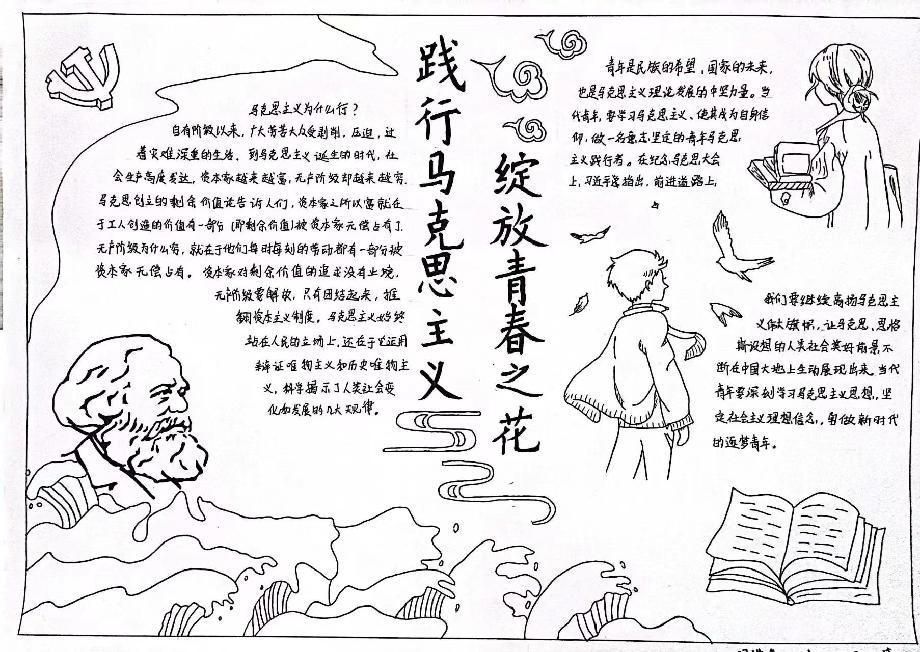 践行马克思主义
绽放青春之花
马克思主义为什么行？
自有阶级以来，广大劳苦大众受剥削，压迫，过
着灾难深重的生活．到马克思主义诞生的时代，社
会生产高度发达，资本家越来越富，无产阶级却越来越穷．
马克思创立的剩余价值论告诉人们，资本家之所以富就在
于工人创造的价值有一部分(即剩余价值)被资本家无偿占有了．
无产阶级为什么穷，就在于他们每时每刻的劳动都有一部分被
资本家无偿占有。资本家对剩余价值的追求没有止境，
无产阶级要解放，只有团结起来，推
翻资本主义制度。马克思主义始终
站在人民的立场上，还在于它运用
辩证唯物主义和历史唯物主
义，科学揭示了人类社会变
化和发展的几大规律。
青年是民族的希望，国家的未来，
也是马克思主义理论发展的中坚力量。当
代青年要学习马克思主义，使其成为自身信
仰，做一名意志坚定的青年马克思
主义践行者。在纪念马克思大会
上，习近平指出，前进道路上，
我们要继续高扬马克思主
义伟大旗帜，让马克思、恩格
斯设想的人类社会美好前景不
断在中国大地上生动展现出来。当代
青年要深刻学习马克思主义思想，坚
定社会主义理想信念，勇做新时代
的逐梦青年。